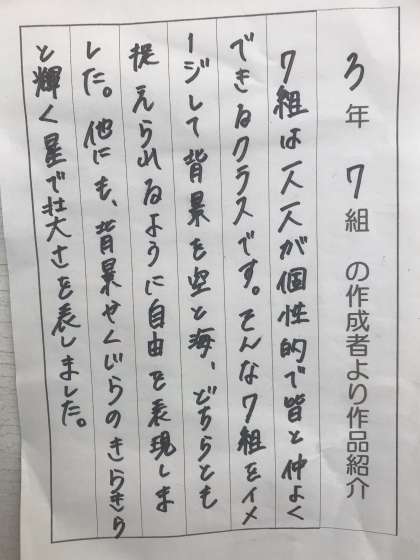 3年 7組 の作成者より作品紹介
7組は一人一人が個性的で皆と仲よく
できるクラスです。そんな7組をイメ
ージして背景を空と海、どちらとも
捉えられるように自由を表現しま
した。他にも、背景やくじらのきらきら
と輝く星で壮大さを表しました。